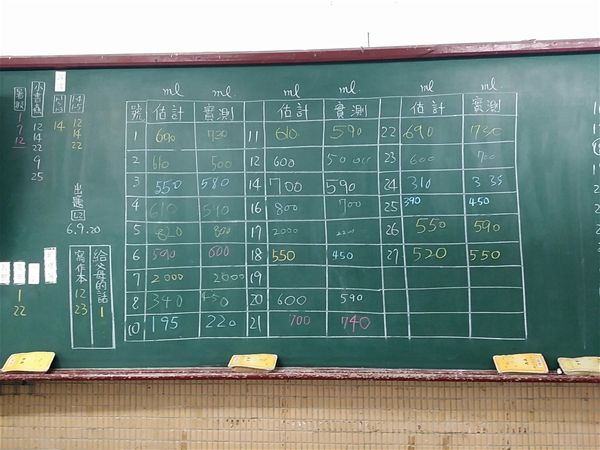 ml ml ml ml. ml ml
號 估計 實測 估計 實測 估計 實測
1 690 730 11 610 590 22 690 730
2 610 500 12 600 23 600 700
3 550 580 14 700 590 24 310 335
4 610 540 16 800 700 25 390 450
5 820 800 17 2000 26 550 590
6 590 600 18 550 450 27 520 550
7 2000 2000 19
8 340 450 20 600 590
10 195 220 21 700 740
小書蟲
12
14
22
9
25
14
12
14
22
出題
6.9.20
給父母的話
1
寫作本
12
23
1
22